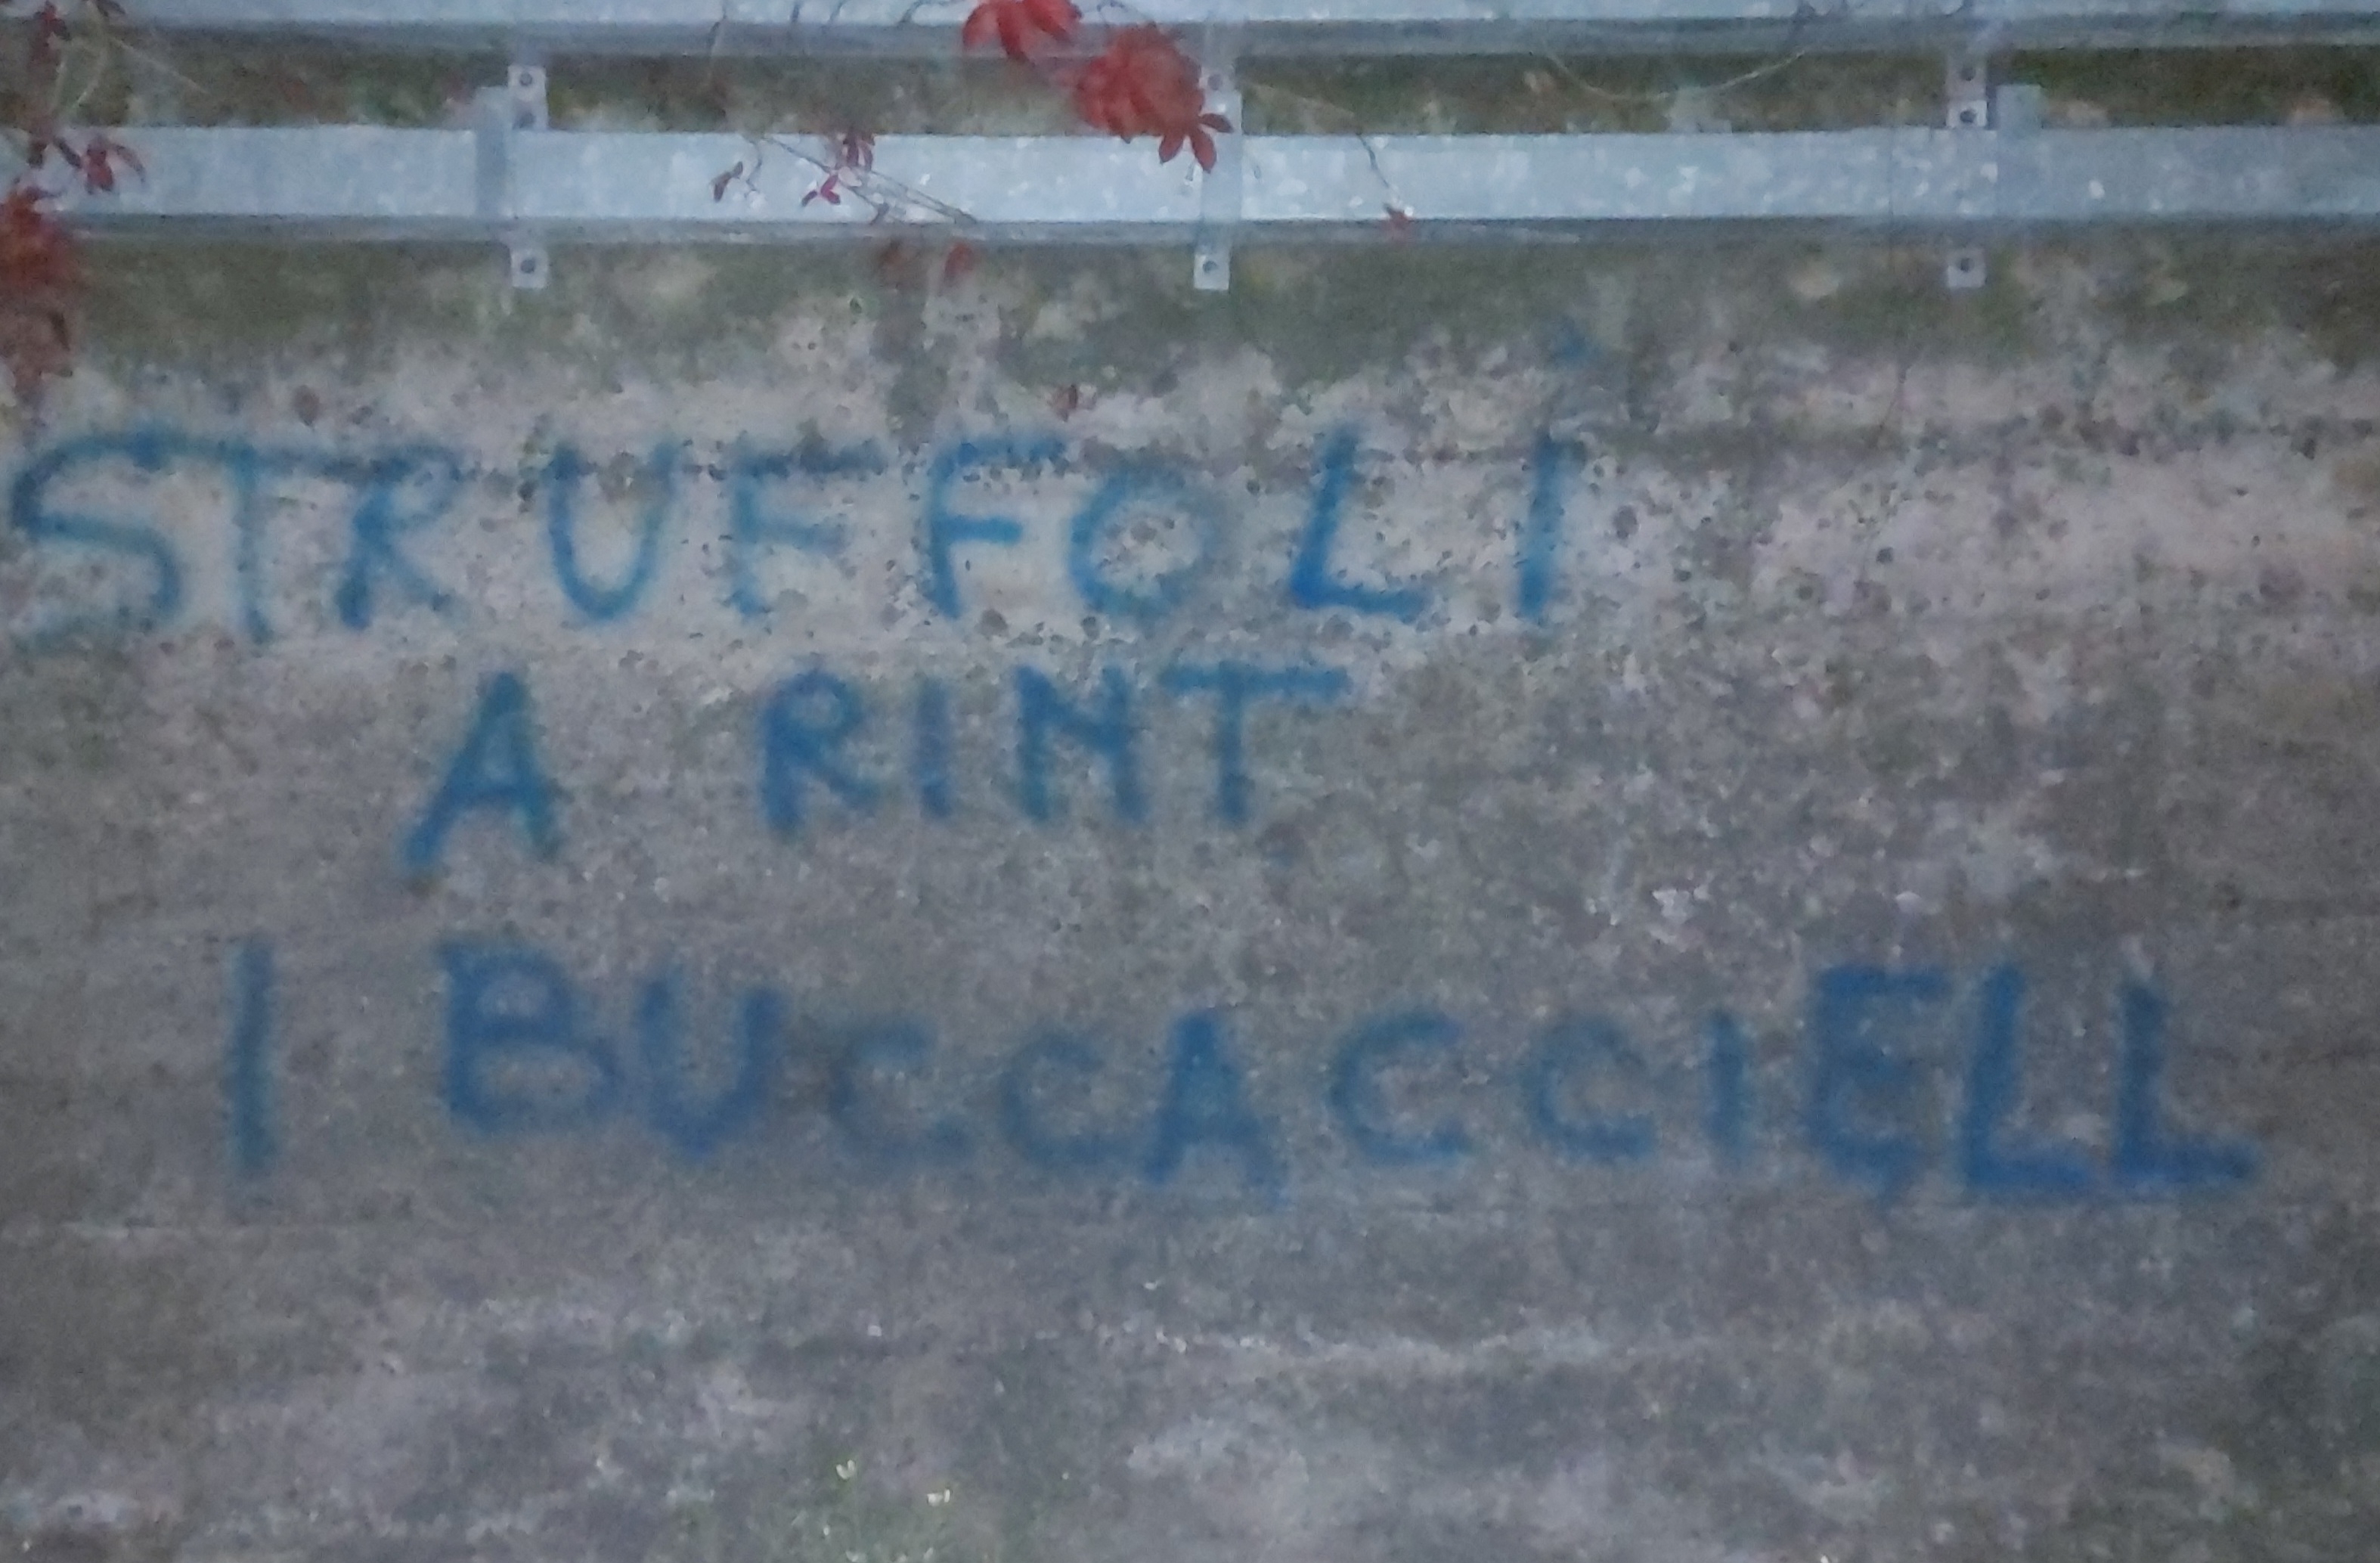 STRUFFOLI
A RINT
I BUCCACCIELL